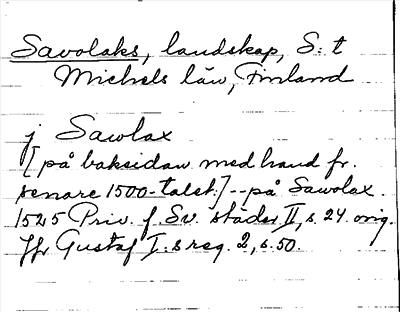 Savolaks, landskap, S:t
Michels län, Finland
j Sawlax
[på baksidan med hand fr.
senare 1500-talet.] -- på Sawolax.
1525 Priv. f. Sv. städer II, s. 24. orig.
Jfr Gustaf I:s reg. 2, s. 50.